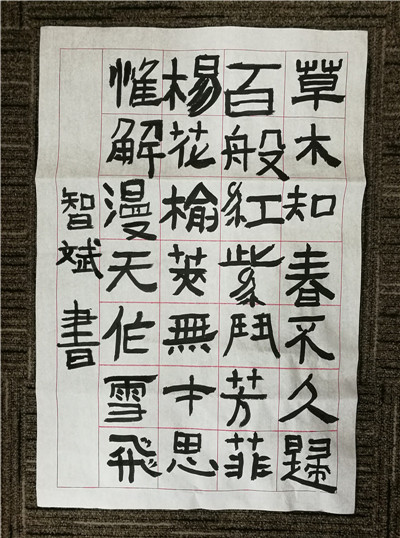 草木知春不久歸
百般紅紫鬥芳菲
楊花榆莢無才思
惟解漫天作雪飛
智斌書